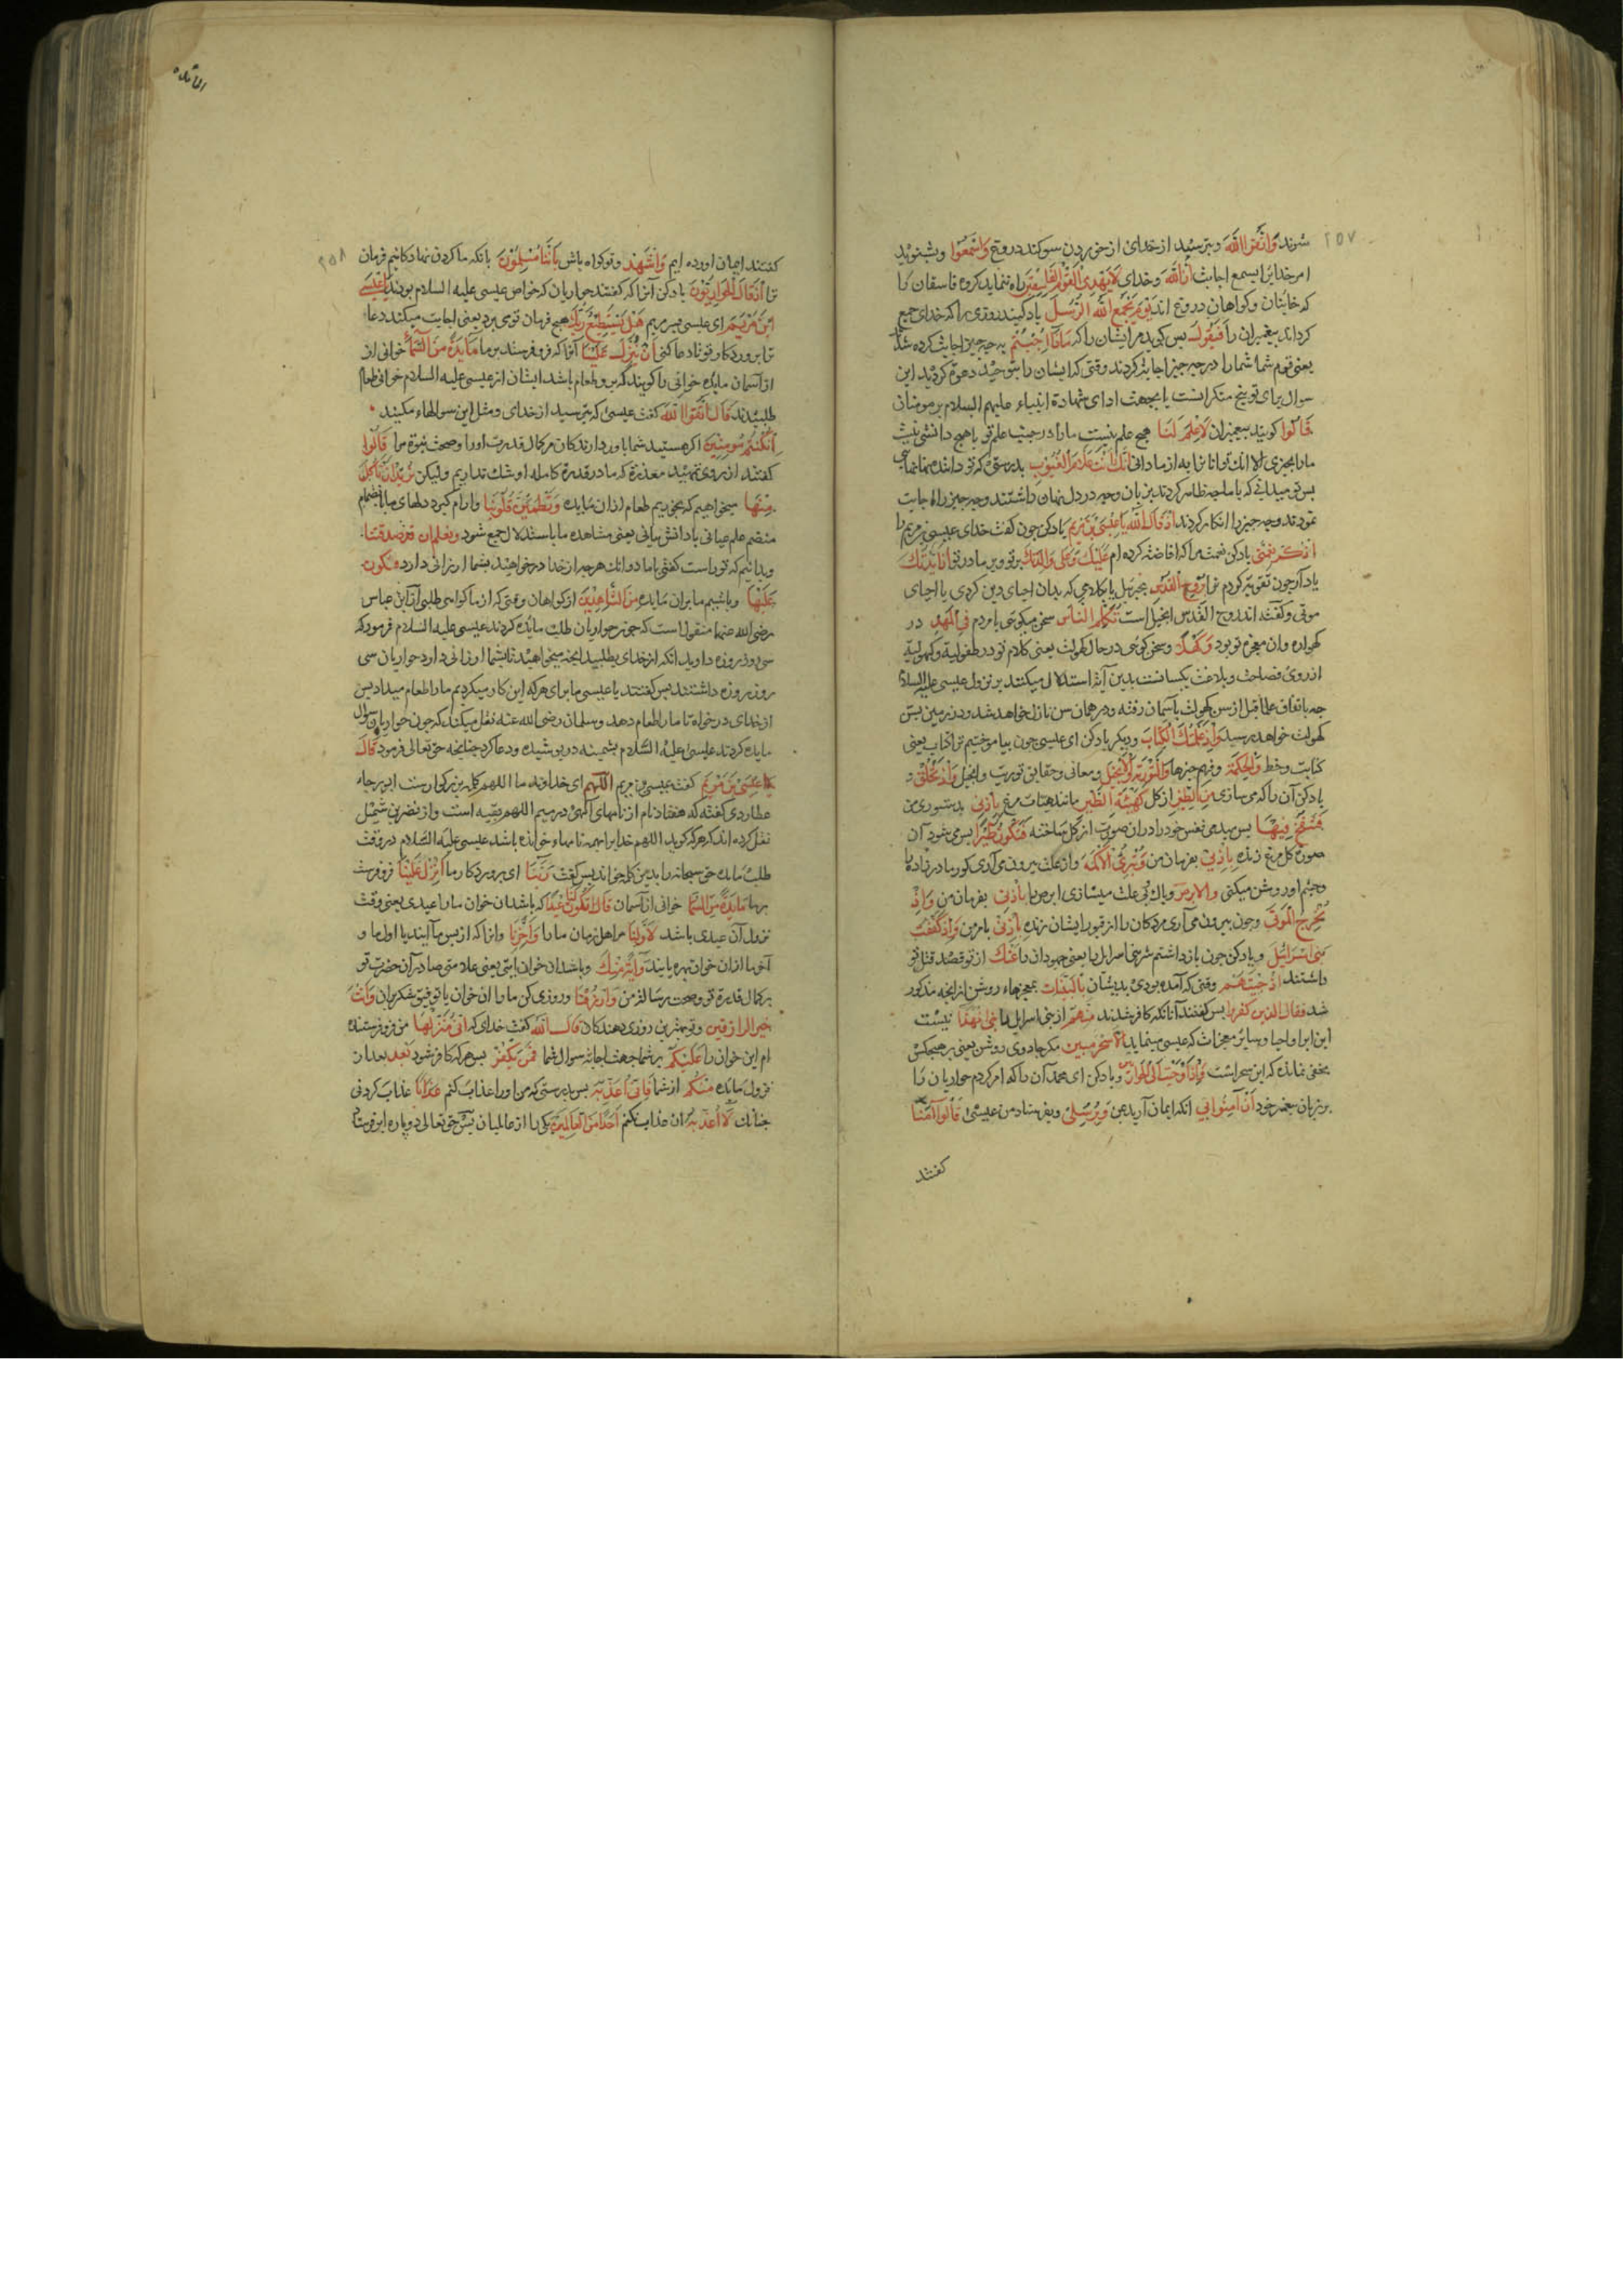 ۲۵۷
شوند وَاتَّقُوا اللَّهَ وبترسید از خدای از خوردن سوکند دروغ وَاسْمَعُوا وبشنوید
امر خدایرا بسمع اجابت وَاللَّهُ وخدای لَا يَهْدِي الْقَوْمَ الْفَاسِقِينَ راه ننماید کروه فاسقان را
که خاینان وکواهان دروغ اند يَوْمَ يَجْمَعُ اللَّهُ الرُّسُلَ یاد کنید روزی را که خدای جمع
کرداند پیغمبران را فَيَقُولُ پس کوید مر ایشان را که مَاذَا أُجِبْتُمْ به چه چیز اجابت کرده شد
یعنی قوم شما شما را در چه چیز اجابة کردند وقتی که ایشان را بتوحید دعوة کردید این
سوال برای توبیخ منکرانست یا بجهت ادای شهادة انبیاء علیهم السلام بر مومنان
قَالُوا کویند پیغمبران لَا عِلْمَ لَنَا هیچ علم نیست ما را در جنب علم تو یا هیچ دانشی نیست
ما را بچیزی الا انك توانا نیابه از ما دانی إِنَّكَ أَنْتَ عَلَّامُ الْغُيُوبِ بدرستی که تو داننده نهانهایی
پس تو میدانی که با ما چه ظاهر کردند بزبان وچه در دل نهان داشتند وچه چیز را اجابت
نمودند وچه چیز را انکار کردند إِذْ قَالَ اللَّهُ يَا عِيسَى ابْنَ مَرْيَمَ یاد کن چون کفت خدای عیسی بن مریم را
اذْكُرْ نِعْمَتِي یاد کن نعمت مرا که افاضه کرده ام عَلَيْكَ وَعَلَى وَالِدَتِكَ بر تو وبر مادر تو إِذْ أَيَّدْتُكَ
یاد آر چون تقویة کردم ترا بِرُوحِ الْقُدُسِ بجبرئیل یا بکلامی که بدان احیای دین کردی یا احیای
موتی وکفته اند روح القدس انجیل است تُكَلِّمُ النَّاسَ سخن میکویی با مردم فِي الْمَهْدِ در
کهواره وان معجزه تو بود وَكَهْلًا وسخن کویی در حال کهولت یعنی کلام تو در طفولیة وکهولیة
از روی فصاحت وبلاغت یکسانست بدین آیة استدلال میکنند بر نزول عیسی علیه السلام
چه باتفاق علما قبل از سن کهولت بآسمان رفته ودر همان سن نازل خواهد شد ودر زمین بسن
کهولت خواهد رسید وَإِذْ عَلَّمْتُكَ الْكِتَابَ ودیکر یاد کن ای عیسی چون بیاموختیم ترا کتاب یعنی
کتابت وخط وَالْحِكْمَةَ وفهم چیزها وَالتَّوْرَاةَ وَالْإِنْجِيلَ ومعانی وحقایق توریت وانجیل وَإِذْ تَخْلُقُ و
یاد کن آن را که می سازی مِنَ الطِّينِ از کل كَهَيْئَةِ الطَّيْرِ مانند هیئات مرغ بِإِذْنِي بدستوری من
فَتَنْفُخُ فِيهَا پس میدمی نفس خود را در ان صورت از کل ساخته فَتَكُونُ طَيْرًا پس می شود آن
صورة کل مرغ زنده بِإِذْنِي بفرمان من وَتُبْرِئُ الْأَكْمَهَ واز علت بیرون می آری کور مادر زاده را
وچشم او روشن میکنی وَالْأَبْرَصَ وپاك بی علت میسازی ابرص را بِإِذْنِي بفرمان من وَإِذْ
تُخْرِجُ الْمَوْتَى وچون بیرون می آری مردکان را از قبور ایشان زنده بِإِذْنِي بامر من وَإِذْ كَفَفْتُ
بَنِي إِسْرَائِيلَ ویاد کن چون باز داشتم شر بنی اسرایل را یعنی جهودان را عَنْكَ از تو قصد قتل تو
داشتند إِذْ جِئْتَهُمْ وقتی که آمده بودی بدیشان بِالْبَيِّنَاتِ بمعجزهاء روشن از انچه مذکور
شد فَقَالَ الَّذِينَ كَفَرُوا پس کفتند آنانکه کافر شدند مِنْهُمْ از بنی اسرایل إِنْ هَذَا نیست
این ابرا واحیا وسایر معجزات که عیسی مینماید إِلَّا سِحْرٌ مُبِينٌ مکر جادوی روشن یعنی بر هیچکس
مخفی نماند که این سحر است وَإِذْ أَوْحَيْتُ إِلَى الْحَوَارِيِّينَ ویاد کن ای محمد آن را که امر کردم حواریان را
بر زبان پیغمبر خود أَنْ آمِنُوا بِي انکه ایمان آرید بمن وَبِرَسُولِي وبفرستاده من عیسی قَالُوا آمَنَّا
کفتند
المائده
۲۵۸
کفتند ایمان اورده ایم وَاشْهَدْ وتو کواه باش بِأَنَّنَا مُسْلِمُونَ بانکه ما کردن نهادکانیم فرمان
ترا إِذْ قَالَ الْحَوَارِيُّونَ یاد کن آنرا که کفتند حواریان که خواص عیسی علیه السلام بودند يَا عِيسَى
ابْنَ مَرْيَمَ ای عیسی پسر مریم هَلْ يَسْتَطِيعُ رَبُّكَ هیچ فرمان تو می برد یعنی اجابت میکند دعاء
ترا پروردکار تو تا دعا کنی أَنْ يُنَزِّلَ عَلَيْنَا آنرا که فرو فرستد بر ما مَائِدَةً مِنَ السَّمَاءِ خوانی از
از آسمان مایده خوانی را کویند که برو طعام باشد ایشان از عیسی علیه السلام خوانی طعام
طلبیدند قَالَ اتَّقُوا اللَّهَ کفت عیسی که بترسید از خدای ومثل این سوالهاء مکنید
إِنْ كُنْتُمْ مُؤْمِنِينَ اکر هستید شما باور دارندکان مر کمال قدرت اورا وصحت نبوة مرا قَالُوا
کفتند از روی تمهید معذرة که ما در قدرة کامله او شك نداریم ولیکن نُرِيدُ أَنْ نَأْكُلَ
مِنْهَا میخواهیم که بخوریم طعام ازان مایده وَتَطْمَئِنَّ قُلُوبُنَا وارام کیرد دلهای ما بانضمام
منضم علم عیانی با دانش بیانی یعنی مشاهده ما با استدلال جمع شود وَنَعْلَمَ أَنْ قَدْ صَدَقْتَنَا
وبدانیم که تو راست کفتی با ما دو انك هرچه از خدا درخواهید بشما ارزانی دارد وَنَكُونَ
عَلَيْهَا وباشیم ما بران مایده مِنَ الشَّاهِدِينَ از کواهان وقتی که از ما کواهی طلبی از ابن عباس
رضی الله عنهما منقولست که چون حواریان طلب مایده کردند عیسی علیه السلام فرمود که
سی روز روزه دارید انکه از خدای بطلبید انچه میخواهید تا بشما ارزانی دارد حواریان سی
روز روزه داشتند پس کفتند یا عیسی ما برای هر که این کار میکردیم ما را طعام میداد پس
از خدای درخواه تا ما را طعام دهد وسلمان رضی الله عنه نقل میکند که چون حواریان سوال
مایده کردند عیسی علیه السلام پشمینه در پوشیده ودعا کرد چنانچه حق تعالی فرمود قَالَ
عِيسَى ابْنُ مَرْيَمَ کفت عیسی بن مریم اللَّهُمَّ ای خداوند ما اللهم کلمه بزرکوار ست ابو رجاء
عطاردی کفته که هفتاد نام از نامهای الهی در میم اللهم تعبیه است واز نضر بن شمیل
نقل کرده اند که هر که کوید اللهم خدایرا بهمه نامهاء خوانده باشد عیسی علیه السلام در وقت
طلب مایده حق سبحانه را بدین کلمه خواند پس کفت رَبَّنَا ای پروردکار ما أَنْزِلْ عَلَيْنَا فرو فرست
بر ما مَائِدَةً مِنَ السَّمَاءِ خوانی از آسمان تَكُونُ لَنَا عِيدًا که باشد ان خوان ما را عیدی یعنی وقت
نزول آن عیدی باشد لِأَوَّلِنَا مر اهل زمان ما را وَآخِرِنَا وانرا که از پس ما آیند یا اول ما و
آخر ما ازان خوان بهره یابند وَآيَةً مِنْكَ وباشد ان خوان ایتی یعنی علامتی صادر از حضرت تو
بر کمال قدرة تو وصحت رسالة من وَارْزُقْنَا وروزی کن ما را ان خوان یا توفیق شکر بران وَأَنْتَ
خَيْرُ الرَّازِقِينَ وتو بهترین روزی دهندکان قَالَ اللَّهُ کفت خدای که إِنِّي مُنَزِّلُهَا من فرو فرستنده
ام این خوان را عَلَيْكُمْ بر شما بجهت اجابة سوال شما فَمَنْ يَكْفُرْ پس هر که کافر شود بَعْدُ بعد از
نزول مایده مِنْكُمْ از شما فَإِنِّي أُعَذِّبُهُ پس بدرستی که من اورا عذاب کنم عَذَابًا عذاب کردنی
چنانك لَا أُعَذِّبُهُ ان عذاب نکنم أَحَدًا مِنَ الْعَالَمِينَ یکی را از عالمیان پس حق تعالی دو پاره ابر فرستاد